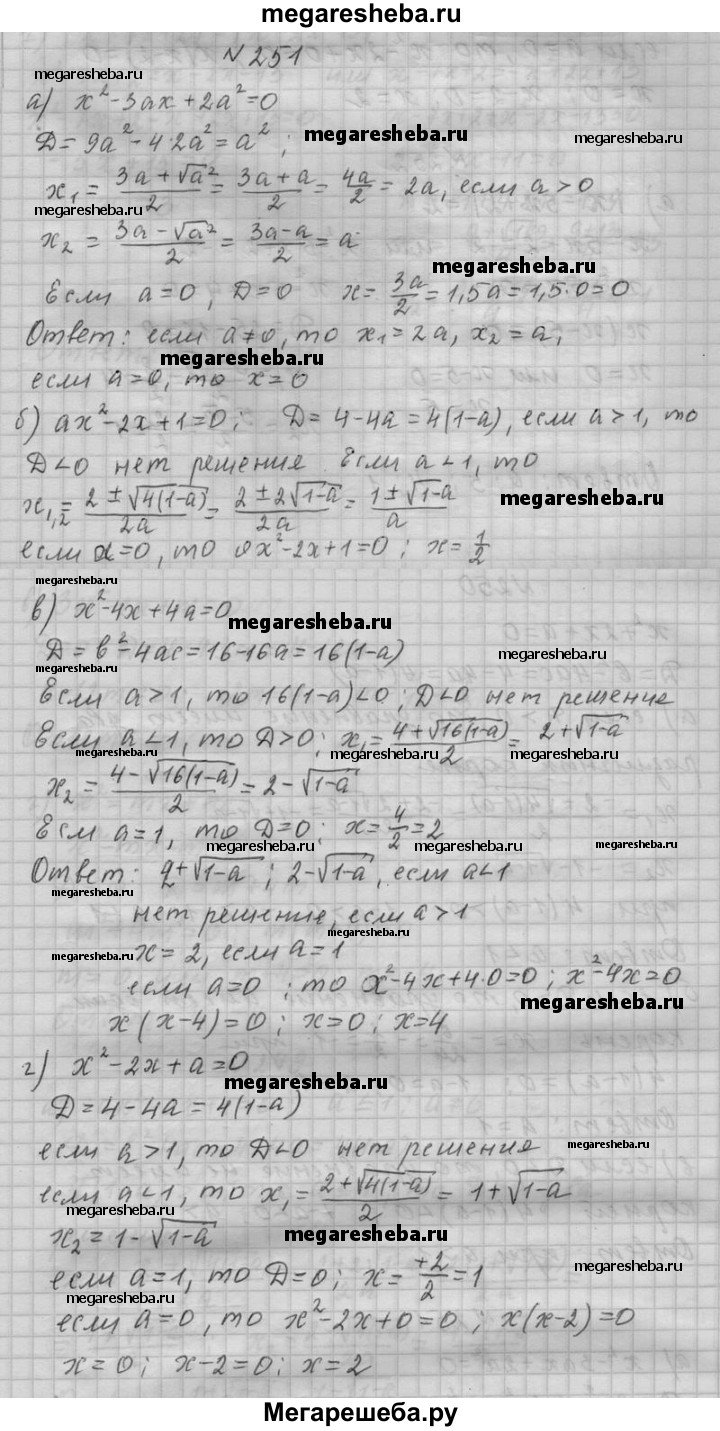 megaresheba.ru
N 251
megaresheba.ru
а) x²-3ax+2a²=0
D=9a²-4·2a²=a²;
megaresheba.ru
megaresheba.ru
x₁ = (3a+√a²)/2 = (3a+a)/2 = 4a/2 = 2a, если a>0
megaresheba.ru
x₂ = (3a-√a²)/2 = (3a-a)/2 = a
megaresheba.ru
Если a=0, D=0 x= 3a/2 =1,5a=1,5·0=0
Ответ: если a≠0, то x₁=2a, x₂=a,
megaresheba.ru
если a=0, то x=0
б) ax²-2x+1=0; D=4-4a=4(1-a), если a>1, то
D<0 нет решение Если a<1, то
x₁,₂= (2±√4(1-a))/2a = (2±2√1-a)/2a = (1±√1-a)/a
megaresheba.ru
если a=0, то 0x²-2x+1=0; x=1/2
megaresheba.ru
в) x²-4x+4a=0
megaresheba.ru
D=b²-4ac=16-16a=16(1-a)
megaresheba.ru
megaresheba.ru
Если a>1, то 16(1-a)<0; D<0 нет решение
Если a<1, то D>0; x₁= (4+√16(1-a))/2 = 2+√1-a
megaresheba.ru
megaresheba.ru
x₂ = (4-√16(1-a))/2 = 2-√1-a
megaresheba.ru
Если a=1, то D=0; x=4/2=2
megaresheba.ru
megaresheba.ru
megaresheba.ru
Ответ: 2+√1-a; 2-√1-a, если a<1
megaresheba.ru
нет решение, если a>1
megaresheba.ru
x=2, если a=1
megaresheba.ru
если a=0; то x²-4x+4·0=0; x²-4x=0
megaresheba.ru
x(x-4)=0; x=0; x=4
г) x²-2x+a=0
megaresheba.ru
D=4-4a=4(1-a)
если a>1, то D<0 нет решение
megaresheba.ru
если a<1, то x₁= (2+√4(1-a))/2 = 1+√1-a
megaresheba.ru
x₂=1-√1-a
megaresheba.ru
если a=1, то D=0; x= +2/2 =1
megaresheba.ru
если a=0, то x²-2x+0=0; x(x-2)=0
x=0; x-2=0; x=2
Мегарешеба.ру